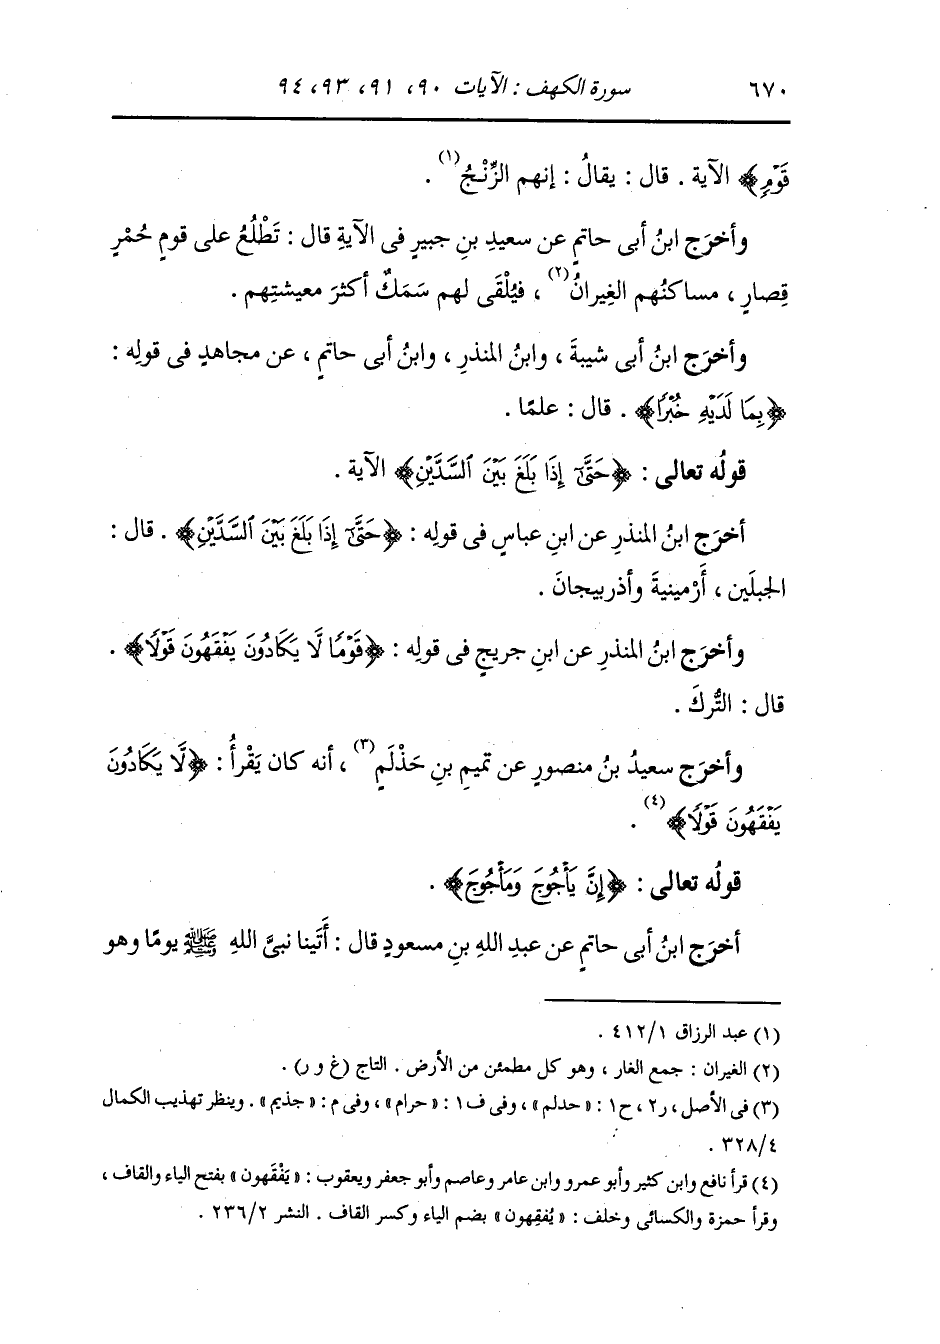 ٦٧٠ سورة الكهف : الآيات ٩٠، ٩١، ٩٣، ٩٤
قَوْمٍ﴾ الآية . قال : يقالُ : إنهم الزِّنْجُ(١) .
وأخرَج ابنُ أبى حاتمٍ عن سعيدِ بنِ جبيرٍ فى الآيةِ قال : تَطْلُعُ على قومٍ حُمْرٍ
قِصارٍ ، مساكنُهم الغِيرانُ(٢) ، فيُلْقَى لهم سَمَكٌ أكثرَ معيشتِهم .
وأخرَج ابنُ أبى شيبةَ ، وابنُ المنذرِ ، وابنُ أبى حاتمٍ ، عن مجاهدٍ فى قولِه :
﴿بِمَا لَدَيْهِ خُبْرًا﴾ . قال : علمًا .
قولُه تعالى : ﴿حَتَّىٰٓ إِذَا بَلَغَ بَيْنَ ٱلسَّدَّيْنِ﴾ الآية .
أخرَج ابنُ المنذرِ عن ابنِ عباسٍ فى قولِه : ﴿حَتَّىٰٓ إِذَا بَلَغَ بَيْنَ ٱلسَّدَّيْنِ﴾ . قال :
الجبلَين ، أَرْمينيةَ وأذربيجانَ .
وأخرَج ابنُ المنذرِ عن ابنِ جريجٍ فى قولِه : ﴿قَوْمًا لَّا يَكَادُونَ يَفْقَهُونَ قَوْلًا﴾ .
قال : التُّركَ .
وأخرَج سعيدُ بنُ منصورٍ عن تميمِ بنِ حَذْلَمٍ(٣) ، أنه كان يَقْرأُ : ﴿لَّا يَكَادُونَ
يَفْقَهُونَ قَوْلًا﴾(٤) .
قولُه تعالى : ﴿إِنَّ يَأْجُوجَ وَمَأْجُوجَ﴾ .
أخرَج ابنُ أبى حاتمٍ عن عبدِ اللهِ بنِ مسعودٍ قال : أَتَينا نبىَّ اللهِ ﷺ يومًا وهو
(١) عبد الرزاق ٤١٢/١ .
(٢) الغيران : جمع الغار ، وهو كل مطمئن من الأرض . التاج (غ و ر) .
(٣) فى الأصل ، ر٢ ، ح١ : « حدلم » ، وفى ف١ : « حرام » ، وفى م : « جذيم » . وينظر تهذيب الكمال
٣٢٨/٤ .
(٤) قرأ نافع وابن كثير وأبو عمرو وابن عامر وعاصم وأبو جعفر ويعقوب : « يَفْقَهون » بفتح الياء والقاف ،
وقرأ حمزة والكسائى وخلف : « يُفقِهون » بضم الياء وكسر القاف . النشر ٢٣٦/٢ .